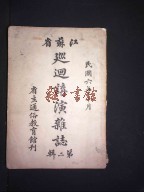 江蘇省
巡迴講演雜誌
第二輯
民國六年 月
省立通俗教育館刊